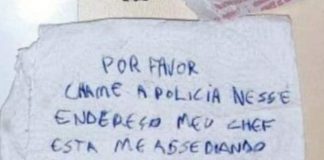 POR FAVOR
CHAME A POLICIA NESSE
ENDEREÇO MEU CHEF
ESTA ME ASSEDIANDO